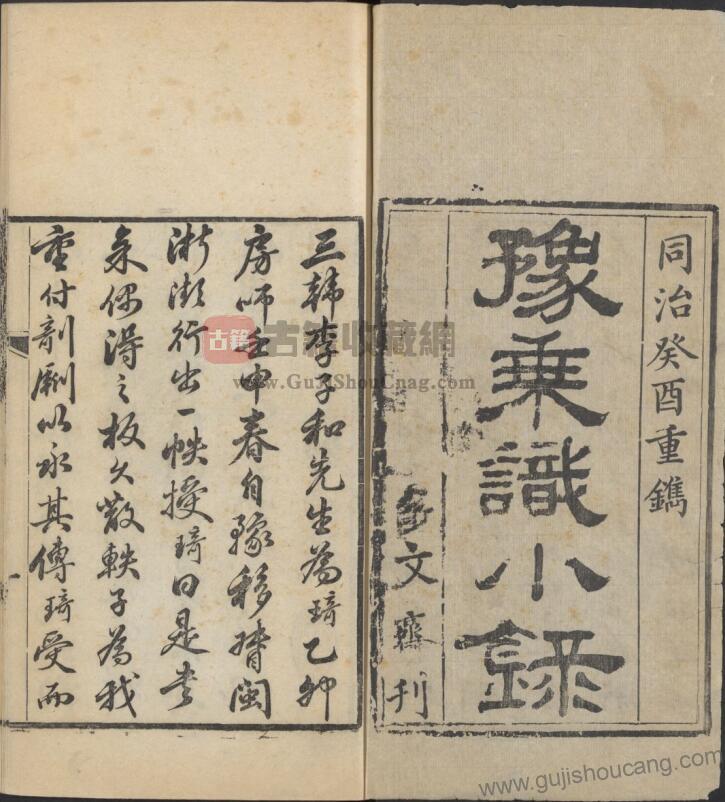 同治癸酉重鐫
豫乘識小錄
文齋刊
三韓李子和先生為琦乙卯
房師壬申春自豫移督閩
浙瀕行出一帙授琦曰是書
余偶得之板久散軼子為我
重付剞劂以永其傳琦受而
古籍
古籍收藏網
www.GujiShouCnag.com
www.gujishoucang.com